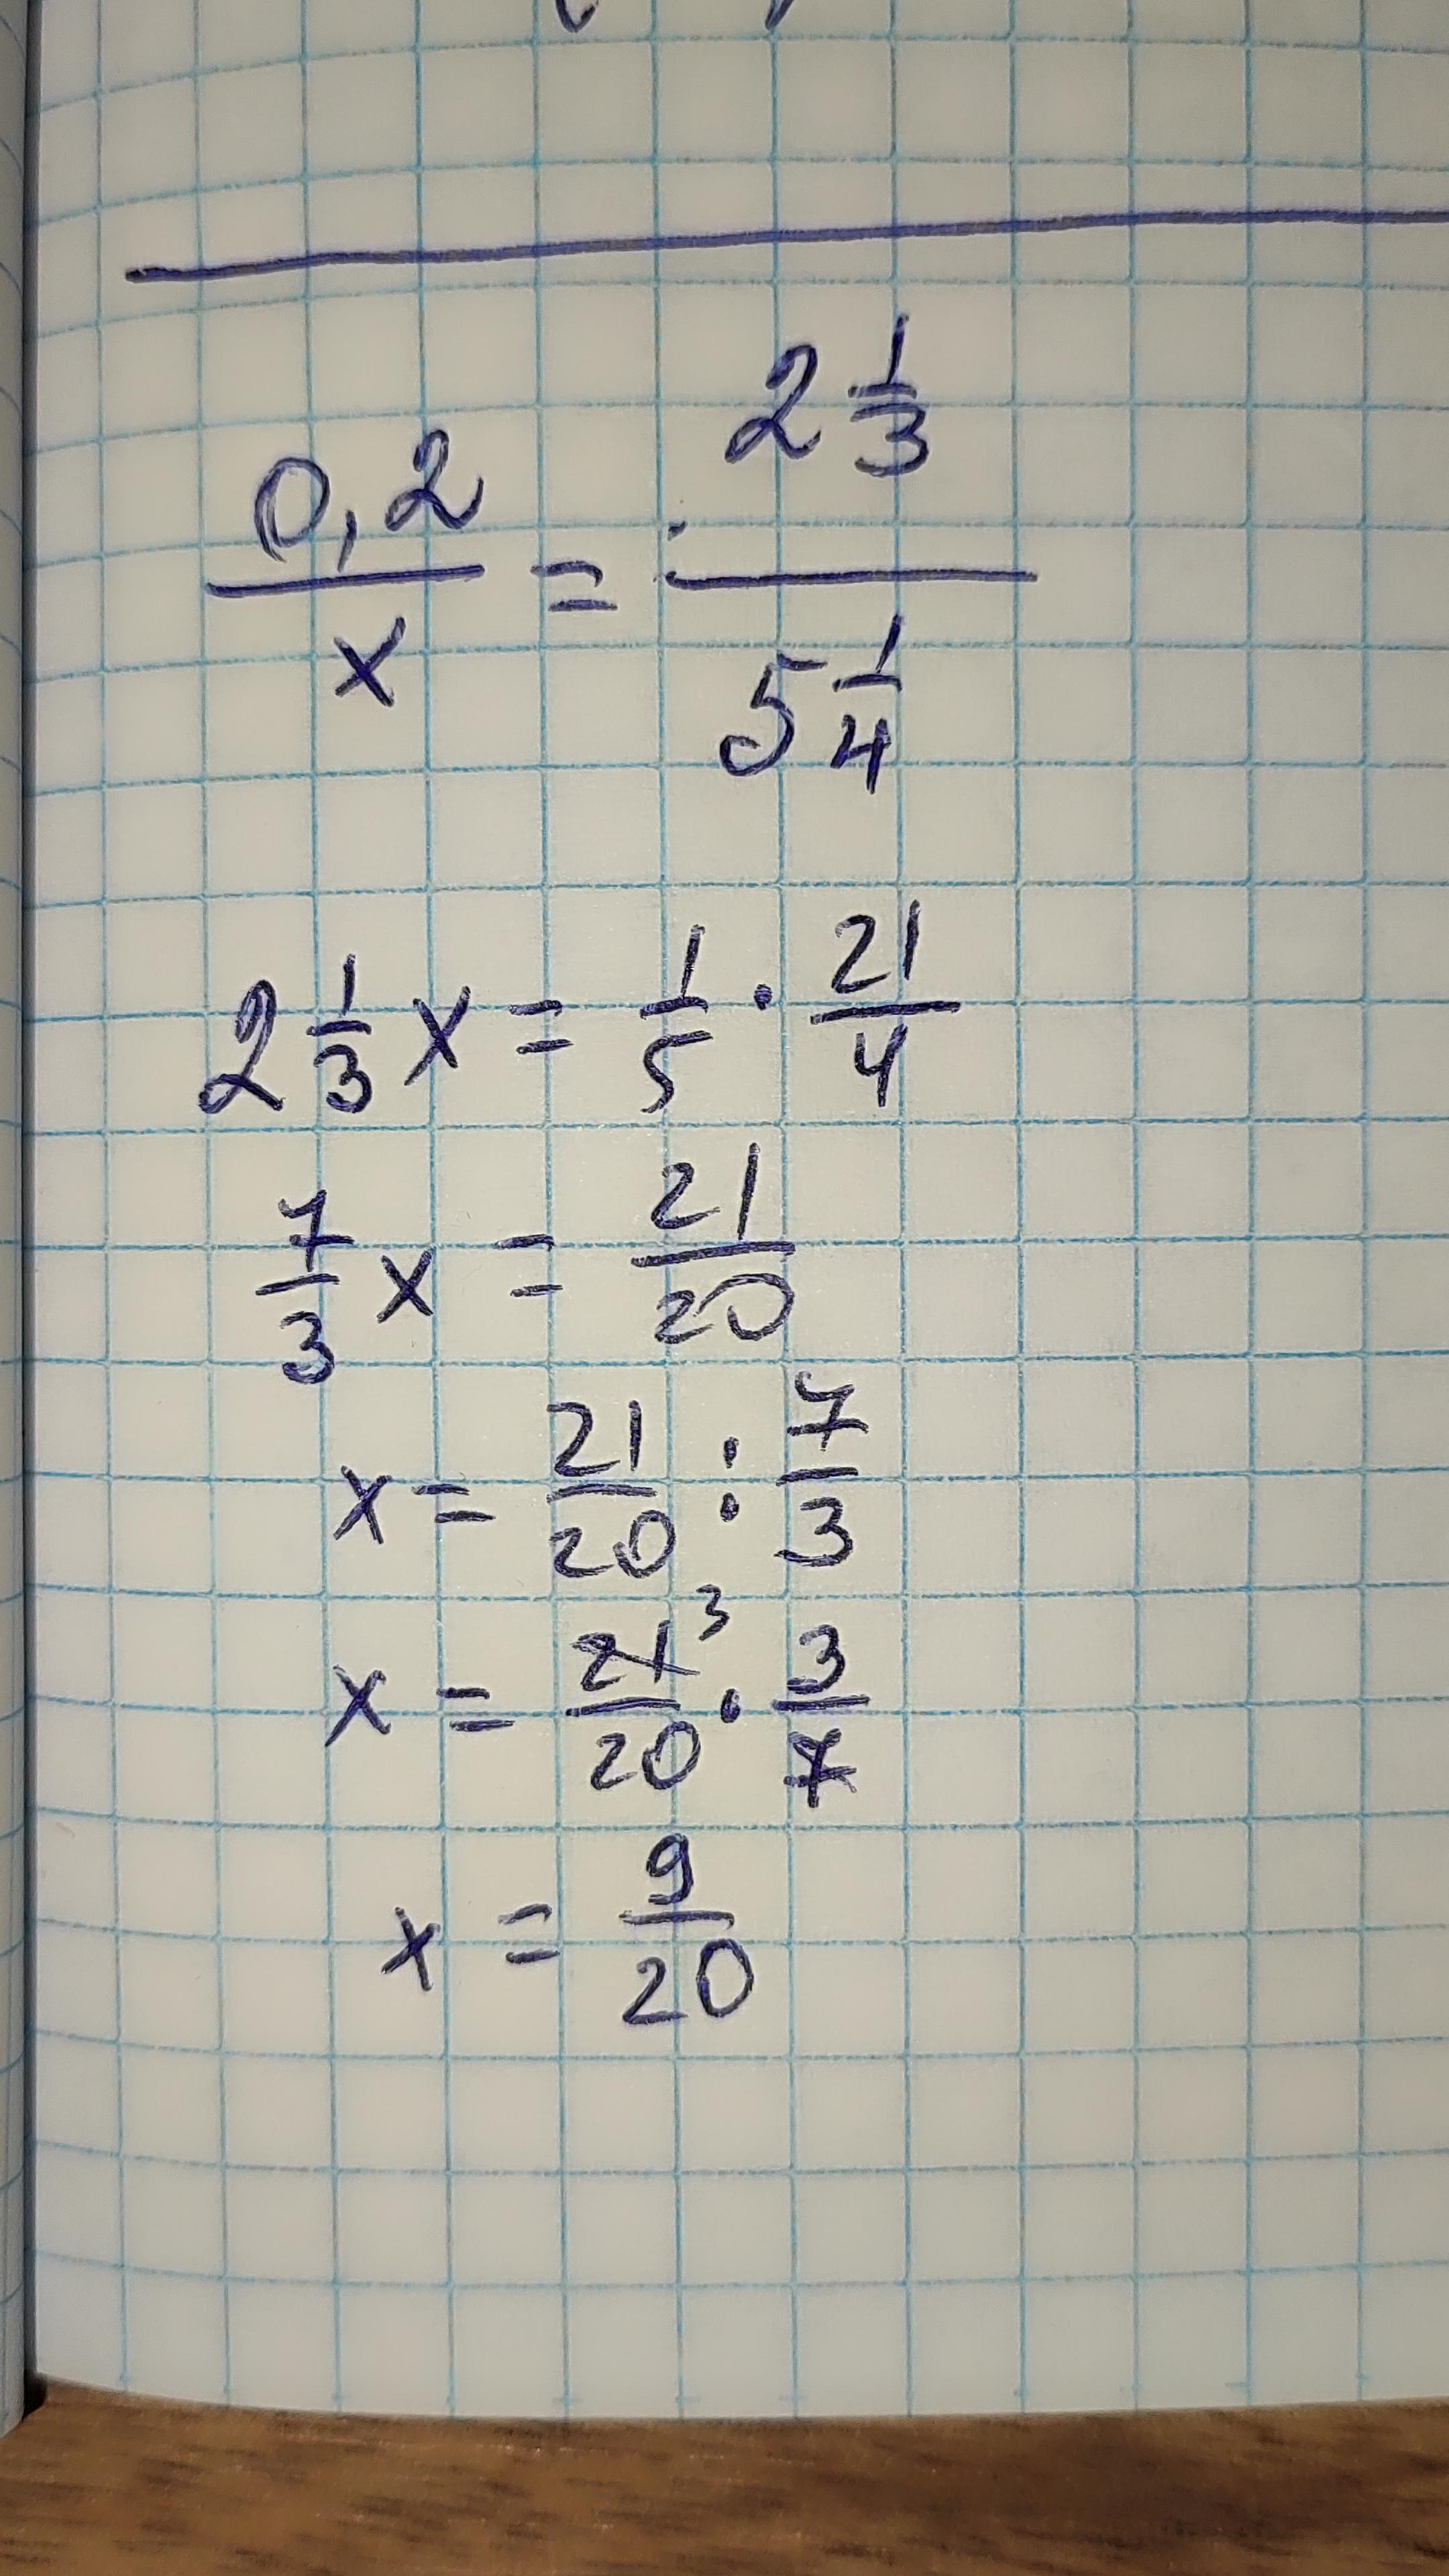 0,2/x = 2 1/3 / 5 1/4
2 1/3 x = 1/5 · 21/4
7/3 x = 21/20
x = 21/20 : 7/3
x = 21/20 ³ · 3/7
x = 9/20